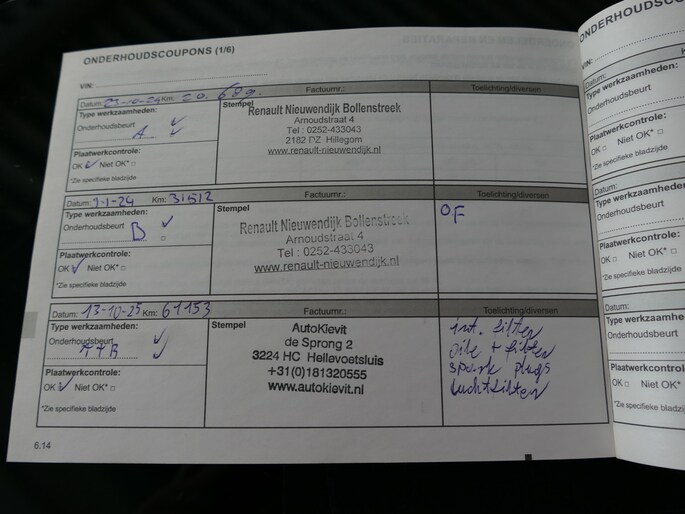 ONDERHOUDSCOUPONS (1/6)
VIN:
Datum: 23-10-24 Km: 20.689.
Factuurnr.:
Toelichting/diversen
Type werkzaamheden:
Onderhoudsbeurt
A
Plaatwerkcontrole:
OK Niet OK*
*Zie specifieke bladzijde
Stempel
Renault Nieuwendijk Bollenstreek
Arnoudstraat 4
Tel : 0252-433043
2182 DZ Hillegom
www.renault-nieuwendijk.nl
Datum: 9-1-24 Km: 31512
Factuurnr.:
Toelichting/diversen
Type werkzaamheden:
Onderhoudsbeurt
B
Plaatwerkcontrole:
OK Niet OK*
*Zie specifieke bladzijde
Stempel
Renault Nieuwendijk Bollenstreek
Arnoudstraat 4
Tel : 0252-433043
www.renault-nieuwendijk.nl
OF
Datum: 13-10-25 Km: 61153
Factuurnr.:
Toelichting/diversen
Type werkzaamheden:
Onderhoudsbeurt
Plaatwerkcontrole:
OK Niet OK*
*Zie specifieke bladzijde
Stempel
AutoKievit
de Sprong 2
3224 HC Hellevoetsluis
+31(0)181320555
www.autokievit.nl
int. filter
olie + filter
spark plugs
luchtfilter
6.14
ONDERHOUDSC
VIN:
Datum:
Type werkzaamheden:
Onderhoudsbeurt
Plaatwerkcontrole:
OK Niet OK*
*Zie specifieke bladzijde
Datum:
Type werkzaamheden:
Onderhoudsbeurt
Plaatwerkcontrole:
OK Niet OK*
*Zie specifieke bladzijde
Datum:
Type werkzaamheden:
Onderhoudsbeurt
Plaatwerkcontrole:
OK Niet OK*
*Zie specifieke bladzijde